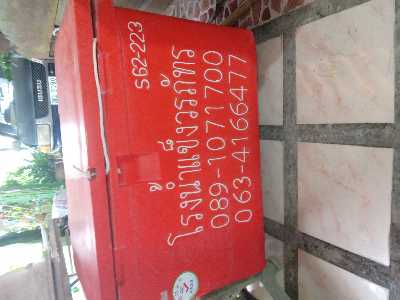 ISUZU
S62-223
โรงน้ำแข็งวรภัทร
089-1071700
063-4166477